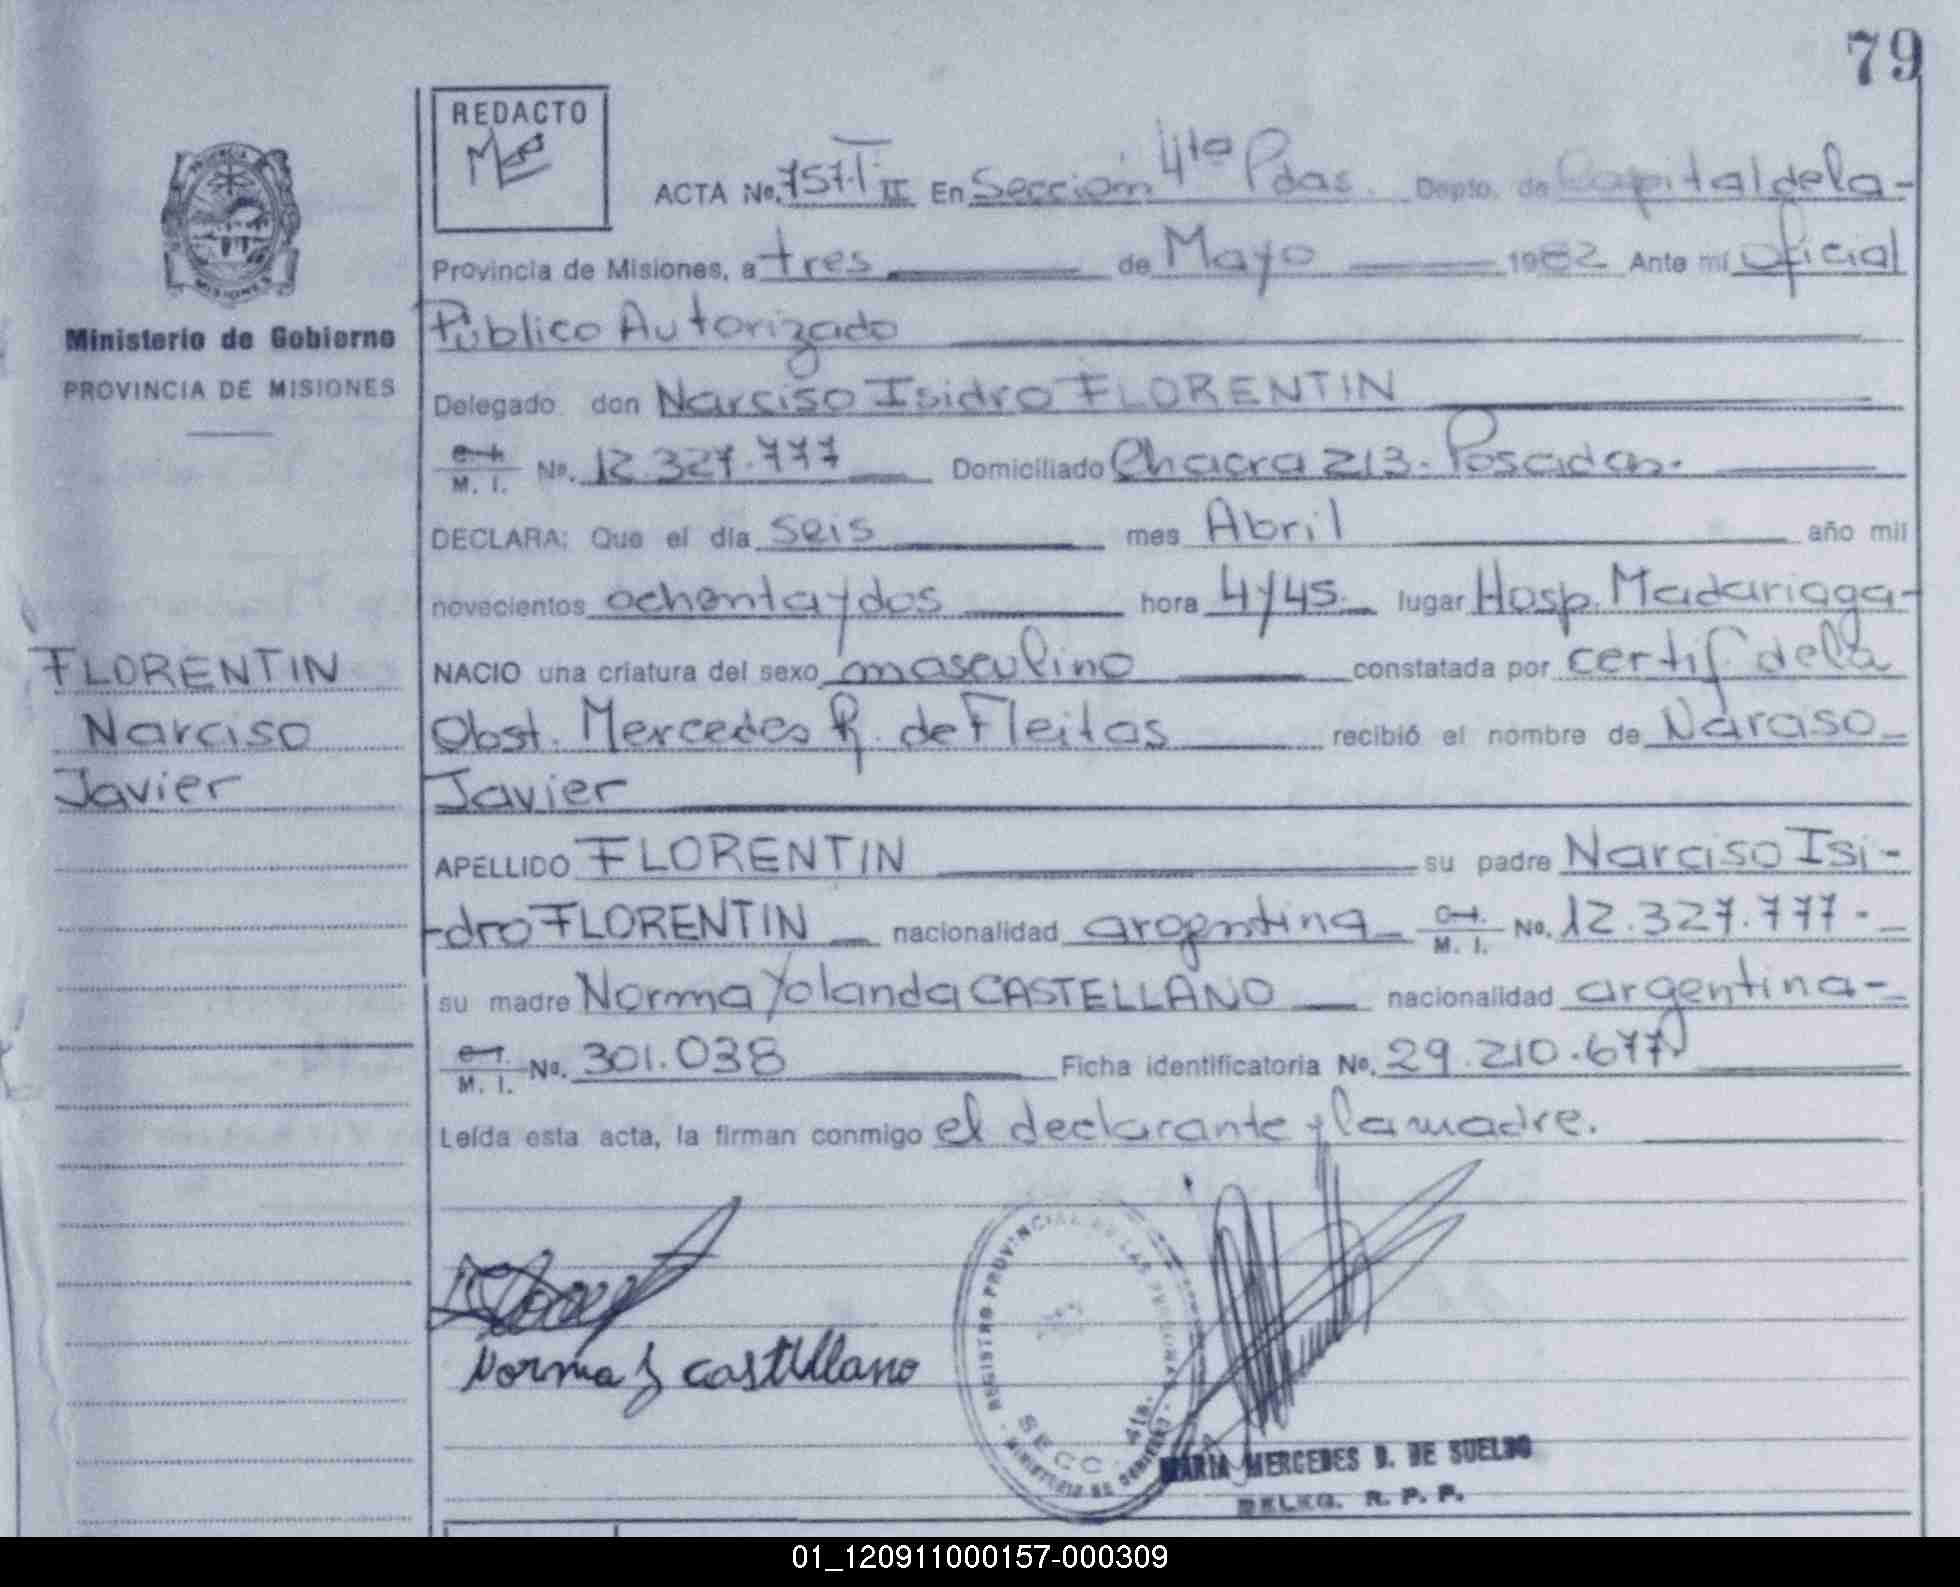 79
REDACTO
ACTA No. 757-T II En Sección 4ta Pdas. Depto. de Capital de la-
Provincia de Misiones, a tres de Mayo 1982 Ante mí Oficial
Ministerio de Gobierno
Público Autorizado
PROVINCIA DE MISIONES
Delegado don Narciso Isidro FLORENTIN
M. I. No. 12.327.777 Domiciliado Chacra 213-Posadas.
DECLARA: Que el día seis mes Abril año mil
novecientos ochenta y dos hora 4 y 45. lugar Hosp. Madariaga-
FLORENTIN
Narciso
Javier
NACIO una criatura del sexo masculino constatada por certif de la
Obst. Mercedes R. de Fleitas recibió el nombre de Narciso
Javier
APELLIDO FLORENTIN su padre Narciso Isi-
-dro FLORENTIN nacionalidad argentina M. I. No. 12.327.777-
su madre Norma Yolanda CASTELLANO nacionalidad argentina-
M. I. No. 301.038 Ficha identificatoria No. 29.210.677
Leída esta acta, la firman conmigo el declarante y la madre.
Norma Y castellano
REGISTRO PROVINCIAL DE LAS PERSONAS
SECC. 4ta.
MINISTERIO DE GOBIERNO
MARIA MERCEDES D. DE SUELDO
DELEG. R. P. P.
01_120911000157-000309